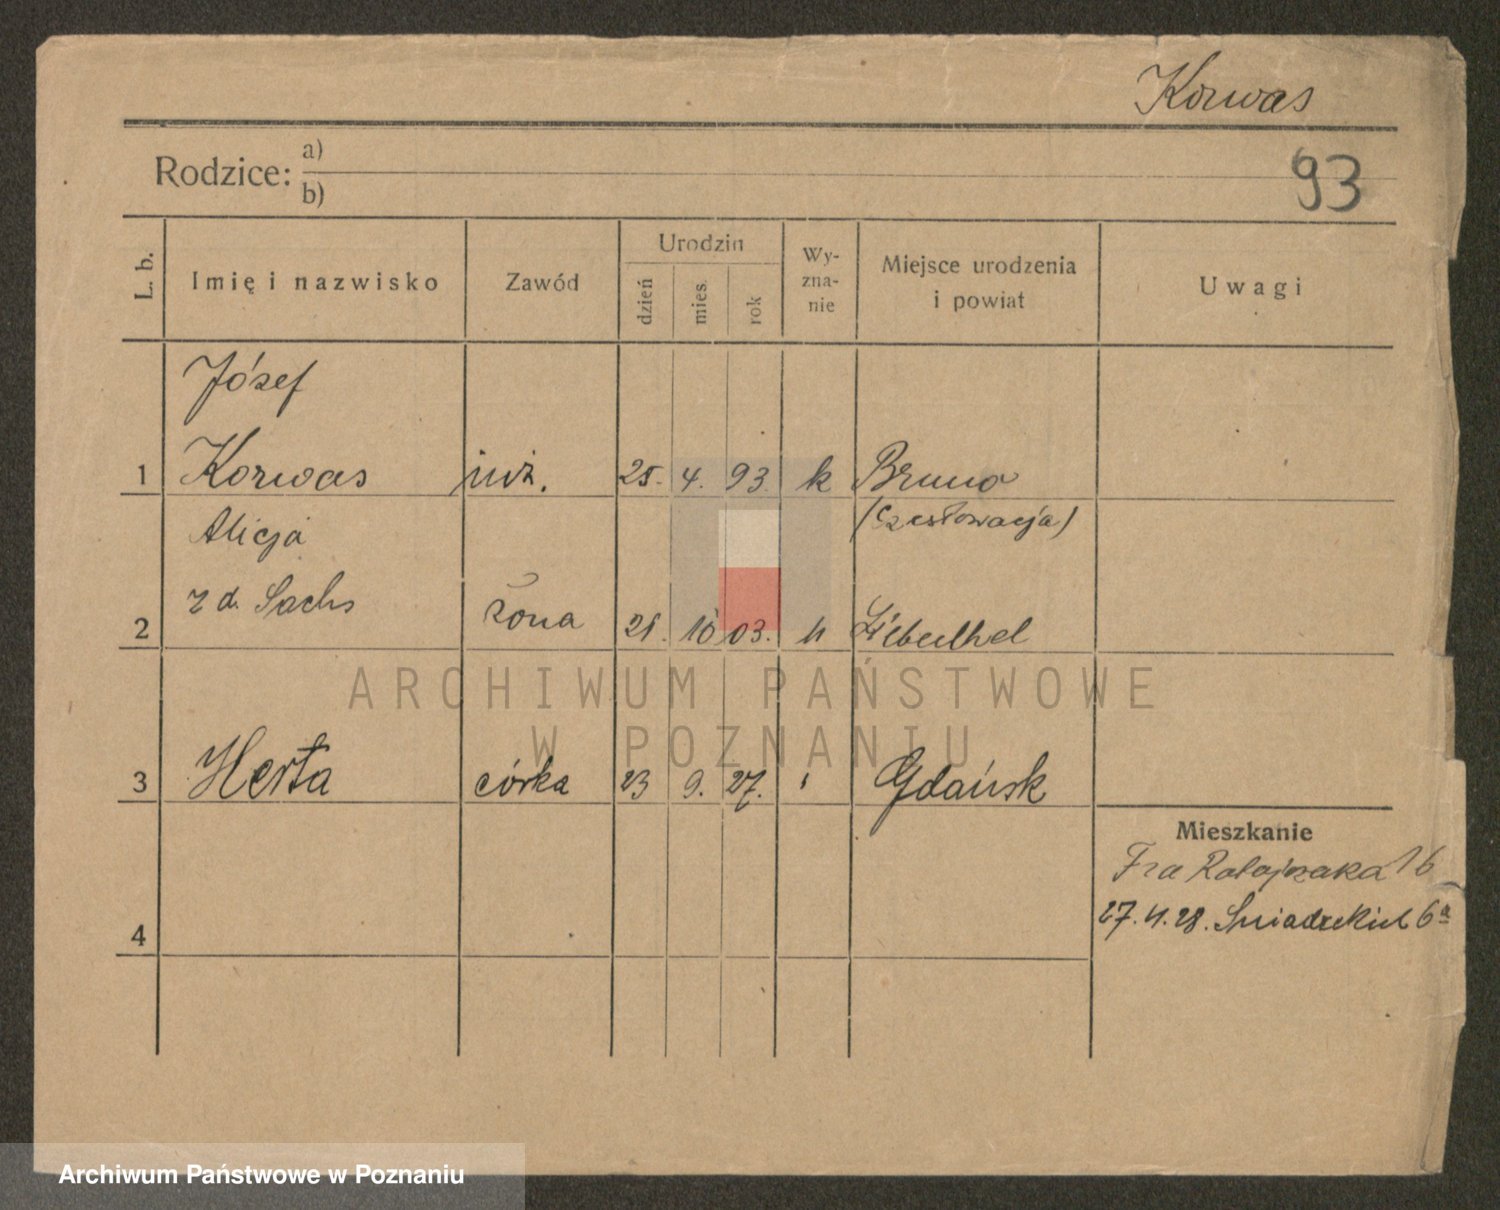 Korwas
Rodzice: a)
b)
93
L. b.
Imię i nazwisko
Zawód
Urodzin
dzień
mies.
rok
Wy-
zna-
nie
Miejsce urodzenia
i powiat
Uwagi
Józef
1 Korwas inż. 25. 4. 93. k Bruno
(Czesłowacja)
Alicja
z d. Sachs
2 żona 21. 10 03. Liebethel
3 Herta córka 23 9. 27. Gdańsk
Mieszkanie
Fra Ratajczaka 16
27. 4. 28. Śniadeckich 6a
4
ARCHIWUM PAŃSTWOWE
W POZNANIU
Archiwum Państwowe w Poznaniu